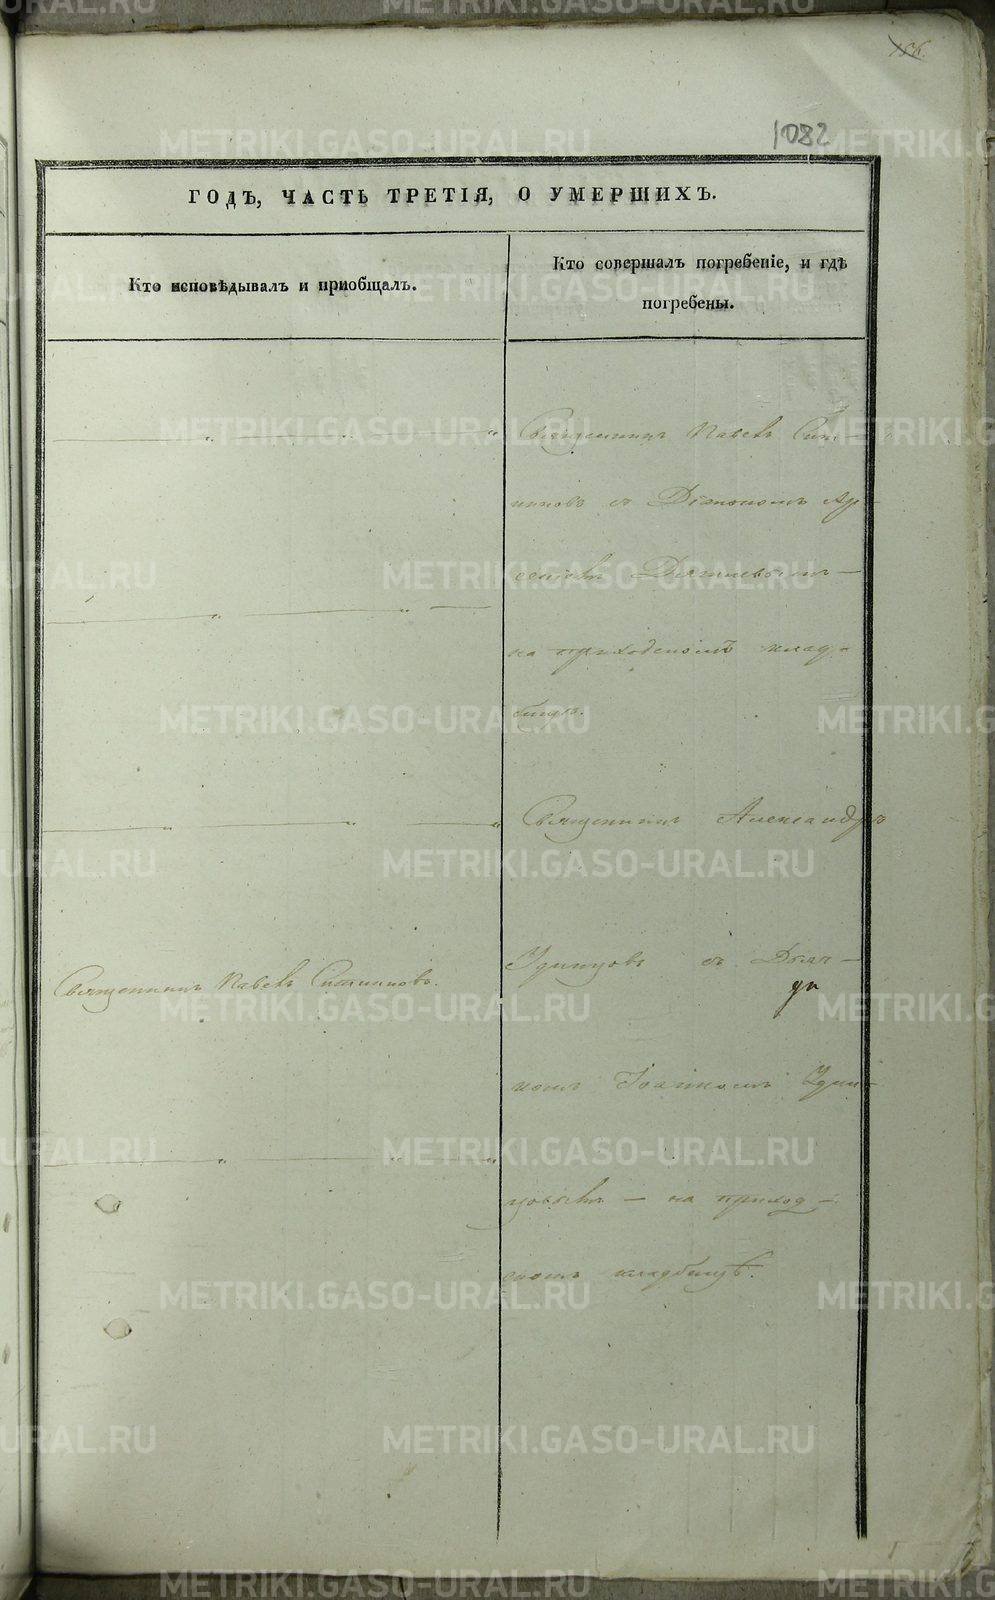 1082
ГОДЪ, ЧАСТЬ ТРЕТІЯ, О УМЕРШИХЪ.
Кто исповѣдывалъ и пріобщалъ.
Кто совершалъ погребеніе, и гдѣ
погребены.
Священникъ Павелъ Сит-
никовъ съ Діакономъ Ар-
сеніемъ
на приходскомъ клад-
бищѣ.
Священникъ Александръ
Удинцовъ съ Дьяч-
Священникъ Павелъ Ситниковъ.
комъ Іоанномъ Удин-
цовымъ - на приход-
скомъ кладбищѣ.
METRIKI.GASO-URAL.RU